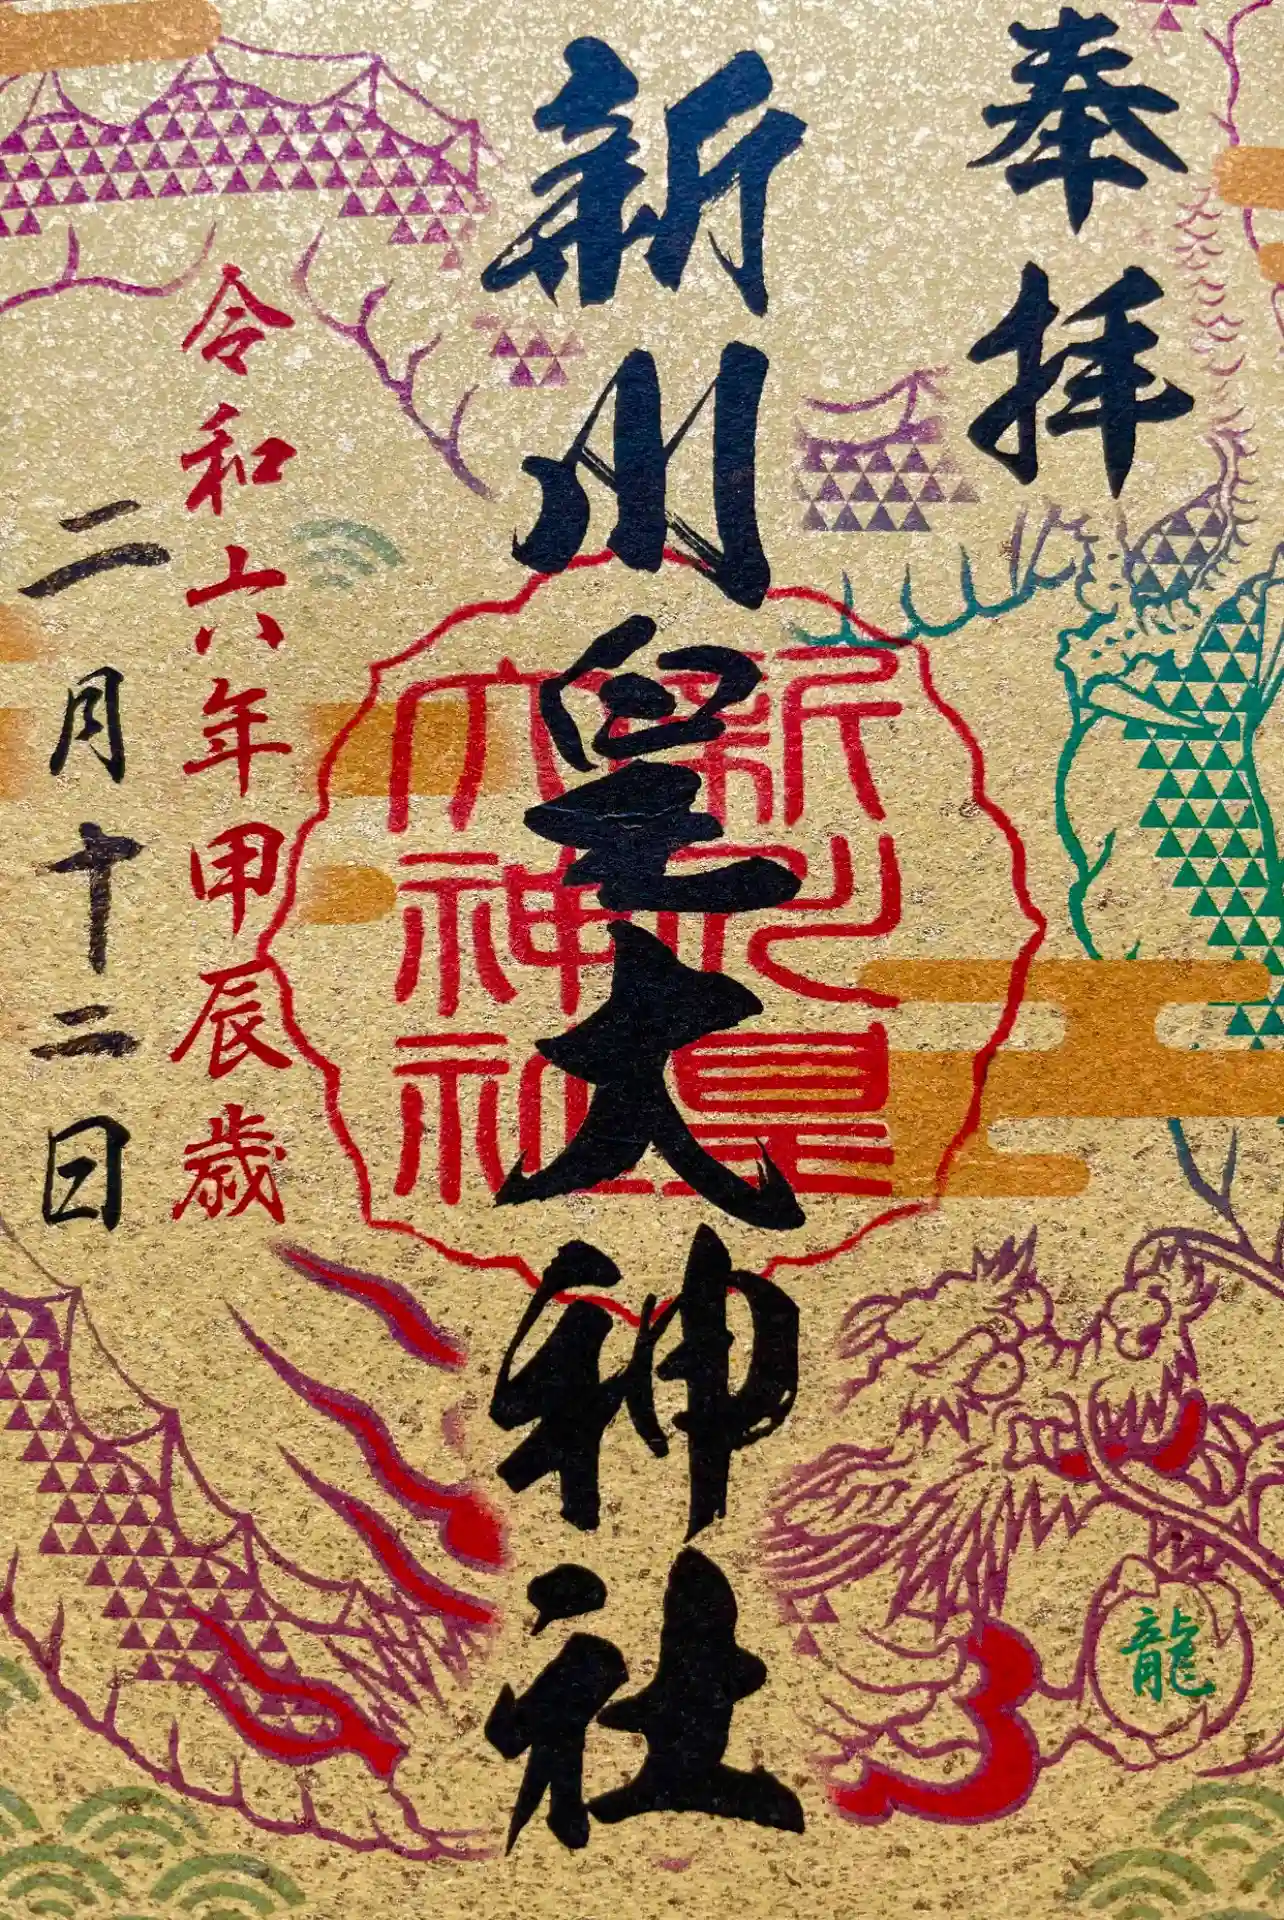 奉拝
新川皇大神社
新川皇大神社
令和六年甲辰歳
二月十二日
龍